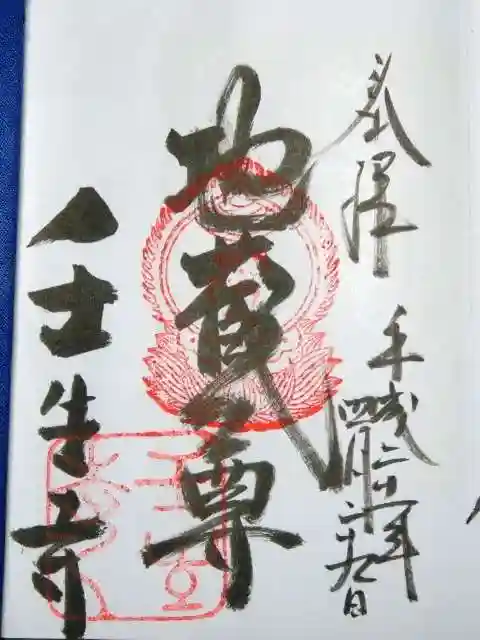 奉拝
平成二十六年
四月二十九日
地蔵尊
壬生寺